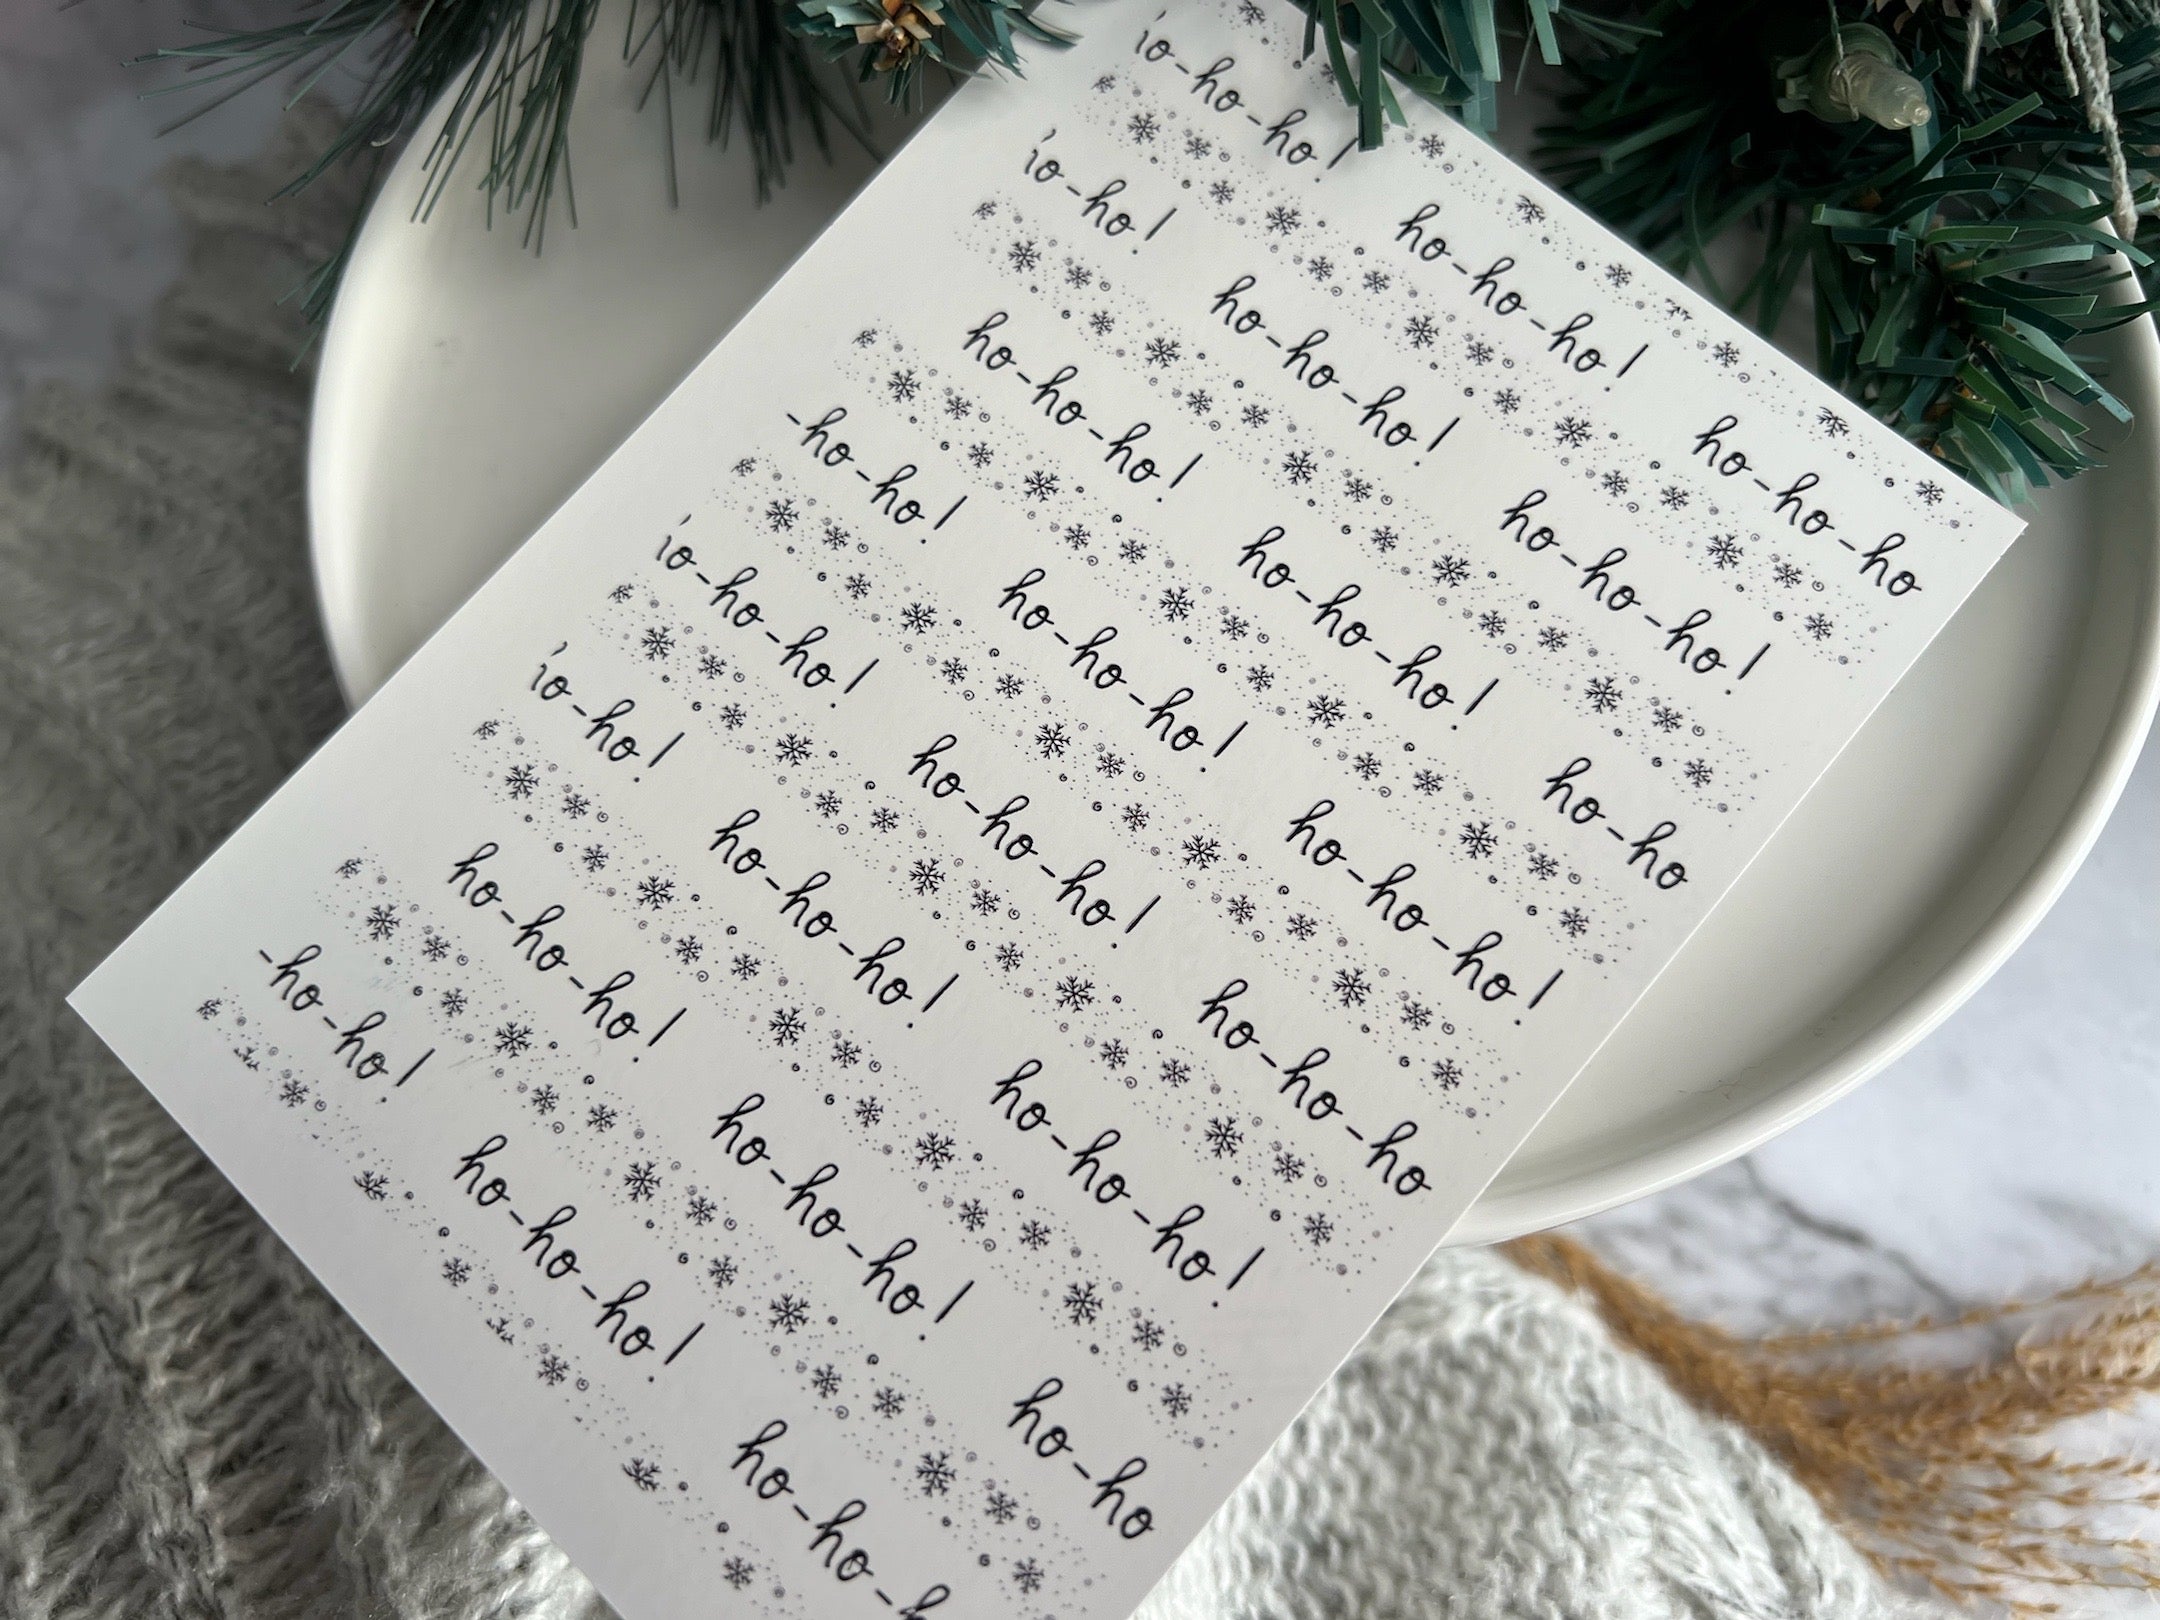 ho-ho-ho! ho-ho-ho! ho-ho-ho
ho-ho! ho-ho-ho! ho-ho-ho!
ho-ho-ho! ho-ho-ho! ho-ho
-ho-ho! ho-ho-ho! ho-ho-ho!
ho-ho-ho! ho-ho-ho! ho-ho-ho
ho-ho! ho-ho-ho! ho-ho-ho!
ho-ho-ho! ho-ho-ho! ho-ho
-ho-ho! ho-ho-ho! ho-ho-h